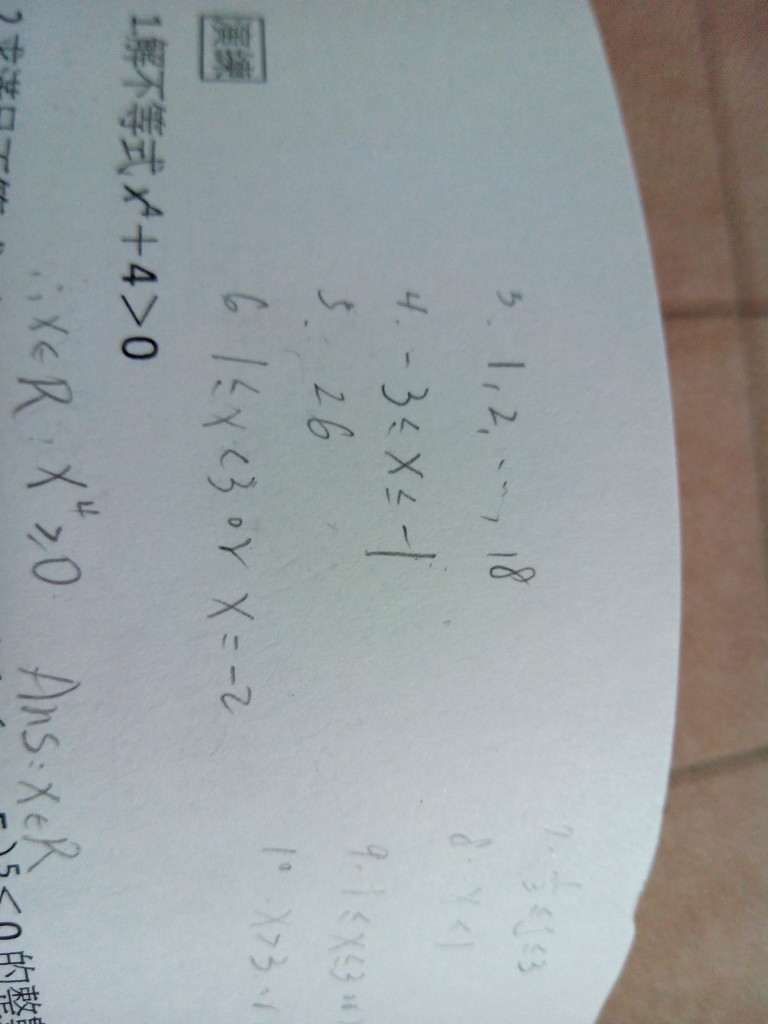 3. 1, 2, ..., 18
4. -3 ≤ x ≤ -1
5. 26
6 1 ≤ x < 3 or x = -2
8. x < 1
9. 1 ≤ x ≤ 3
10. x > 3
演練
1.解不等式 x⁴+4>0
∴ x ∈ R ∵ x⁴ ≥ 0 Ans: x ∈ R
5<0的整